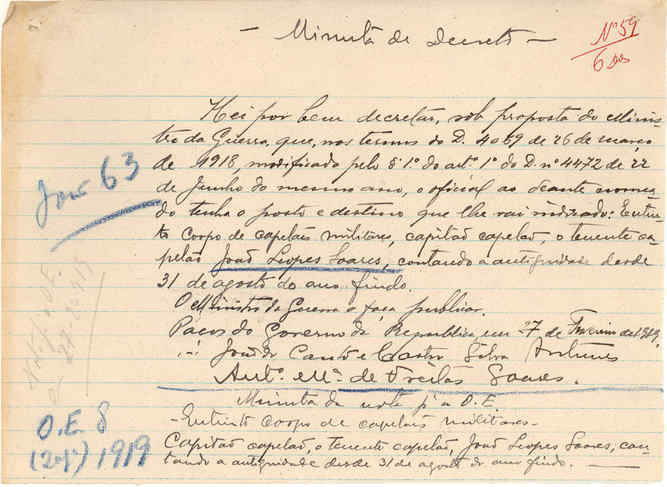 — Minuta de Decreto —
Nº 59
6
Hei por bem decretar, sob proposta do Minis
tro da Guerra, que, nos termos do D. 4059 de 26 de março
de 1918, modificado pelo § 1º do artº 1º do D. nº 4472 de 22
de Junho do mesmo ano, o oficial ao deante nomea
do tenha o posto e destino que lhe vai indicado: Extin
to Corpo de capelães militares, capitão capelão, o tenente ca
pelão João Lopes Soares, contando a antiguidade desde
31 de agosto do ano findo.
O Ministro da Guerra o faça publicar.
Paços do Governo da Republica, em 27 de Fevereiro de 1919.
João do Canto e Castro Silva Antunes
Antº. Mª. de Freitas Soares.
Minuta da nota pª a O. E.
— Extinto Corpo de capelães militares —
Capitão capelão, o tenente capelão, João Lopes Soares, con
tando a antiguidade desde 31 de agosto do ano findo. —
63
O.E. 8
(2ª) 1919